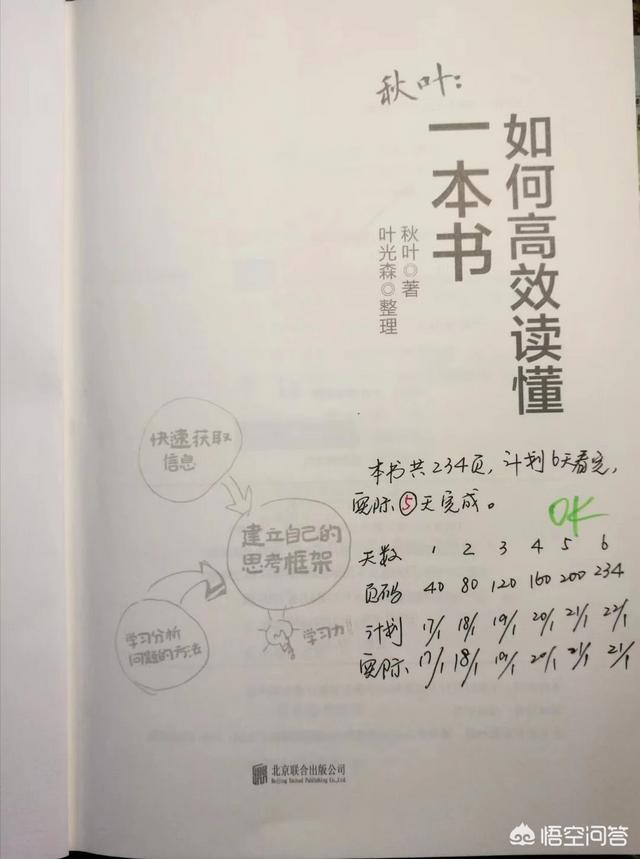 秋叶:
如何高效读懂
一本书
秋叶◎著
叶光森◎整理
快速获取
信息
建立自己的
思考框架
学习分析
问题的方法
学习力
本书共234页,计划6天看完,
实际⑤天完成。
OK
天数 1 2 3 4 5 6
页码 40 80 120 160 200 234
计划 17/1 18/1 19/1 20/1 21/1 22/1
实际 17/1 18/1 19/1 20/1 21/1 21/1
北京联合出版公司
Beijing United Publishing Co.,Ltd.
悟空问答